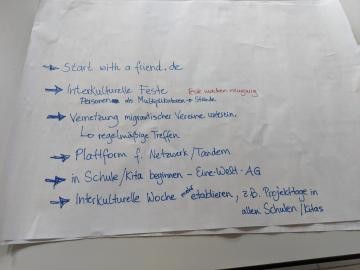 → Start with a friend.de
→ Interkulturelle Feste Essen machen neugierig
Personen als Multiplikatoren → Stände
→ Vernetzung migrantischer Vereine unterstü.
↳ regelmäßige Treffen
→ Plattform f. Netzwerk/Tandem
→ in Schule/Kita beginnen - Eine-Welt-AG
→ Interkulturelle Woche etablieren, z.B. Projekttage in
allen Schulen/Kitas